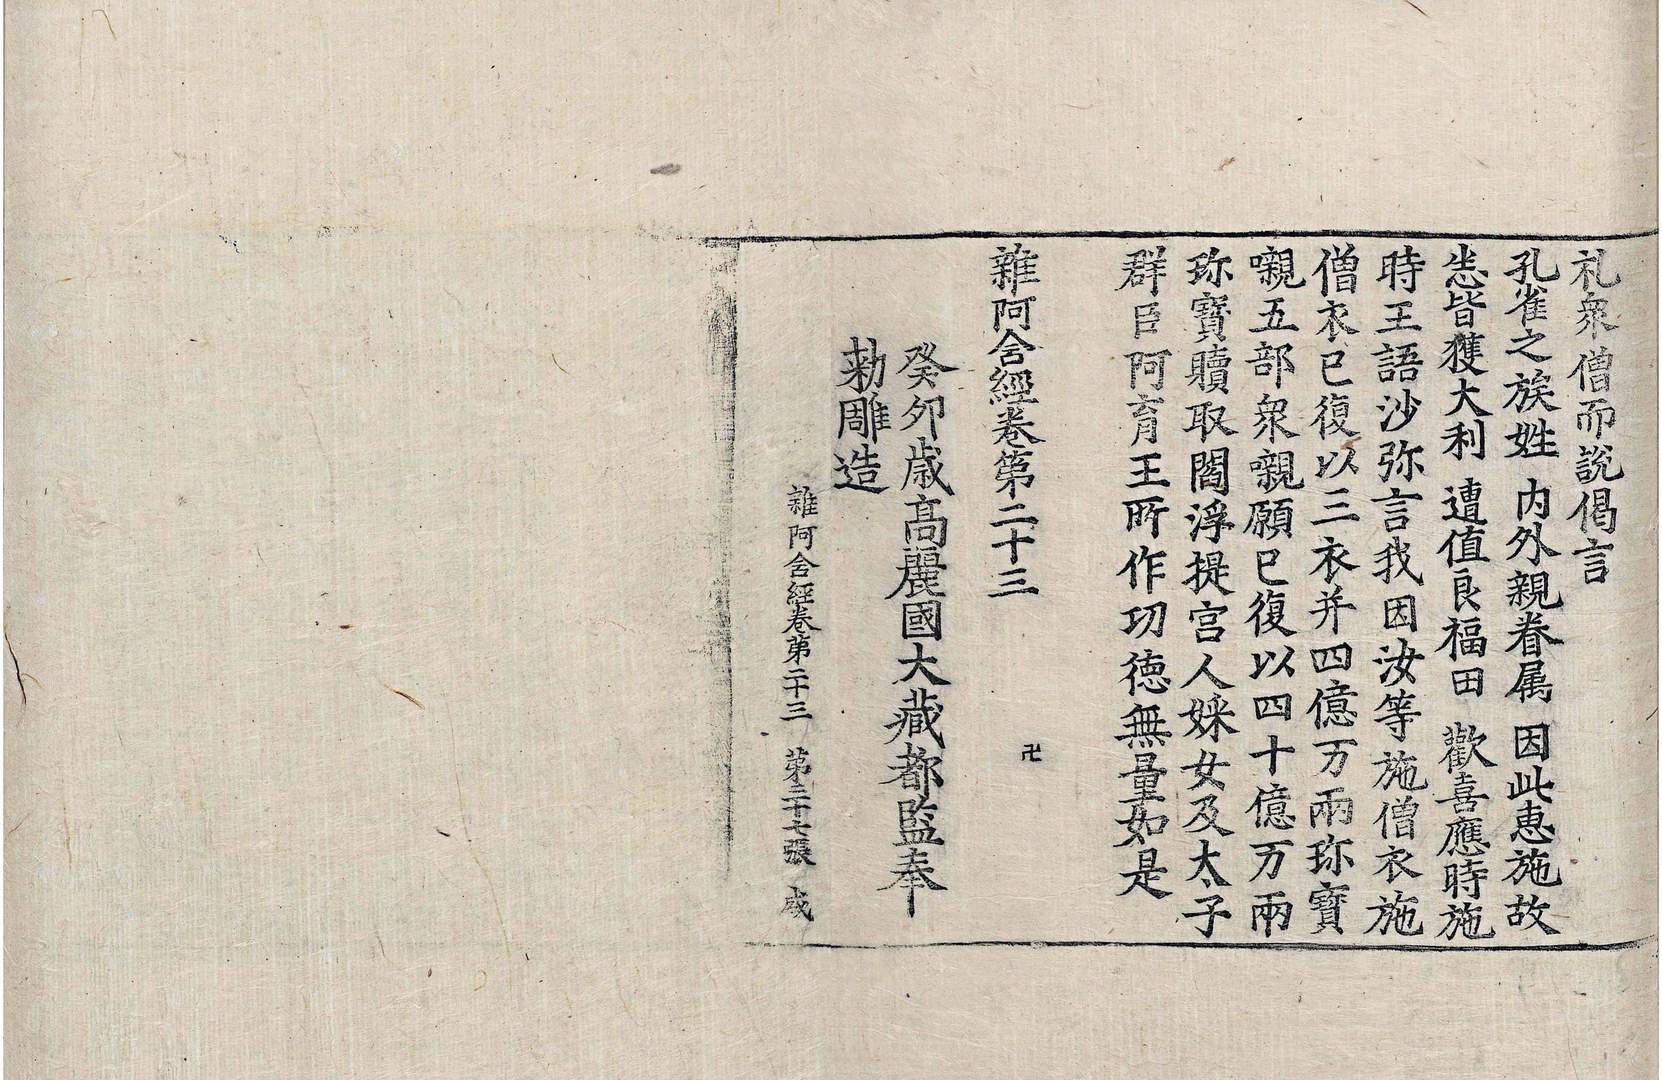 礼衆僧而說偈言
孔雀之族姓 内外親眷属 因此惠施故
恙皆獲大利 遭值良福田 歡喜應時施
時王語沙弥言我因汝等施僧衣施
僧衣已復以三衣并四億万兩珎寶
嚫五部衆嚫願已復以四十億万兩
珎寶贖取閻浮提宫人婇女及太子
群臣阿育王所作功徳無量如是
雜阿含經卷第二十三
卍
癸卯歳髙麗國大藏都監奉
勅雕造
雜阿含經卷第二十三 第二十七張 盛